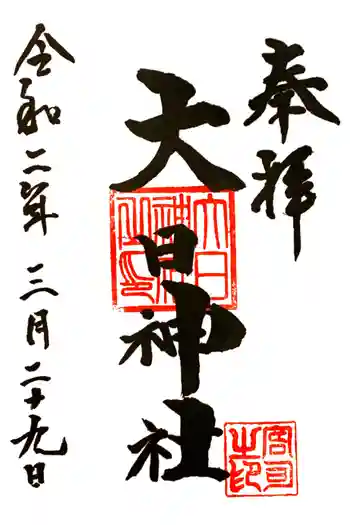 奉拝
大日神社
令和二年三月二十九日
大日神社之印
宮司之印